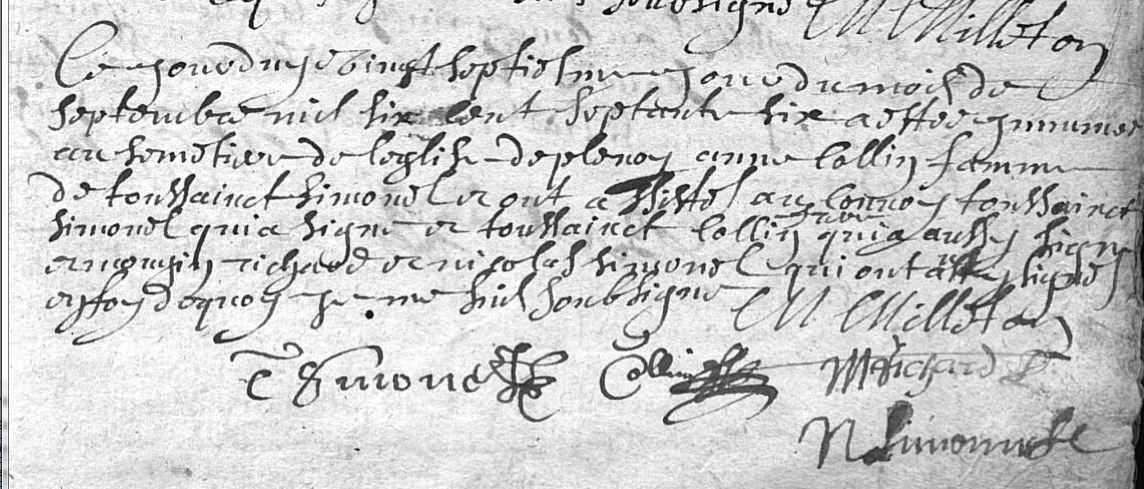 soubsigne M Milleton
Ce jourduye vingt septiesme jour du mois de
septembre mil six cent septante six a ettee inhumee
au semetiere de leglise de plenoy anne Collin famme
de toussainct simonel et ont assistes au convoy toussainct
simonel qui a signe et toussainct Collin frere qui a aussy signe
et mougin richard et nicolas simonel qui ont aussy signes
en foy de quoy je me suis soubsigne M Milleton
T Simonel Collin M Richard
N Simonnel